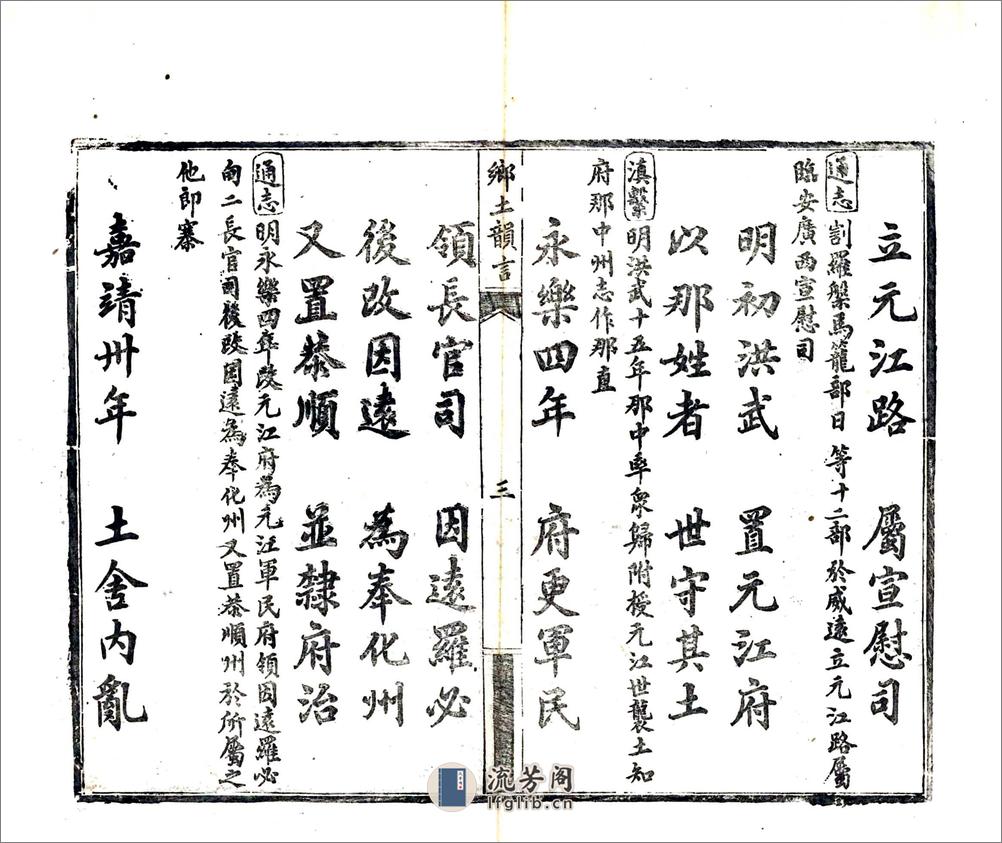 立元江路　屬宣慰司
通志 割羅槃馬籠部日　等十二部於威遠立元江路屬
臨安廣西宣慰司
明初洪武　置元江府
以那姓者　世守其土
滇繫 明洪武十五年那中率衆歸附授元江世襲土知
府那中州志作那直
永樂四年　府更軍民
鄉土韻言
三
領長官司　因遠羅必
後改因遠　為奉化州
又置恭順　並隸府治
通志 明永樂四年改元江府為元江軍民府領因遠羅必
甸二長官司後改因遠為奉化州又置恭順州於所屬之
他郎寨
嘉靖卅年　土舍内亂
流芳阁
lfglib.cn